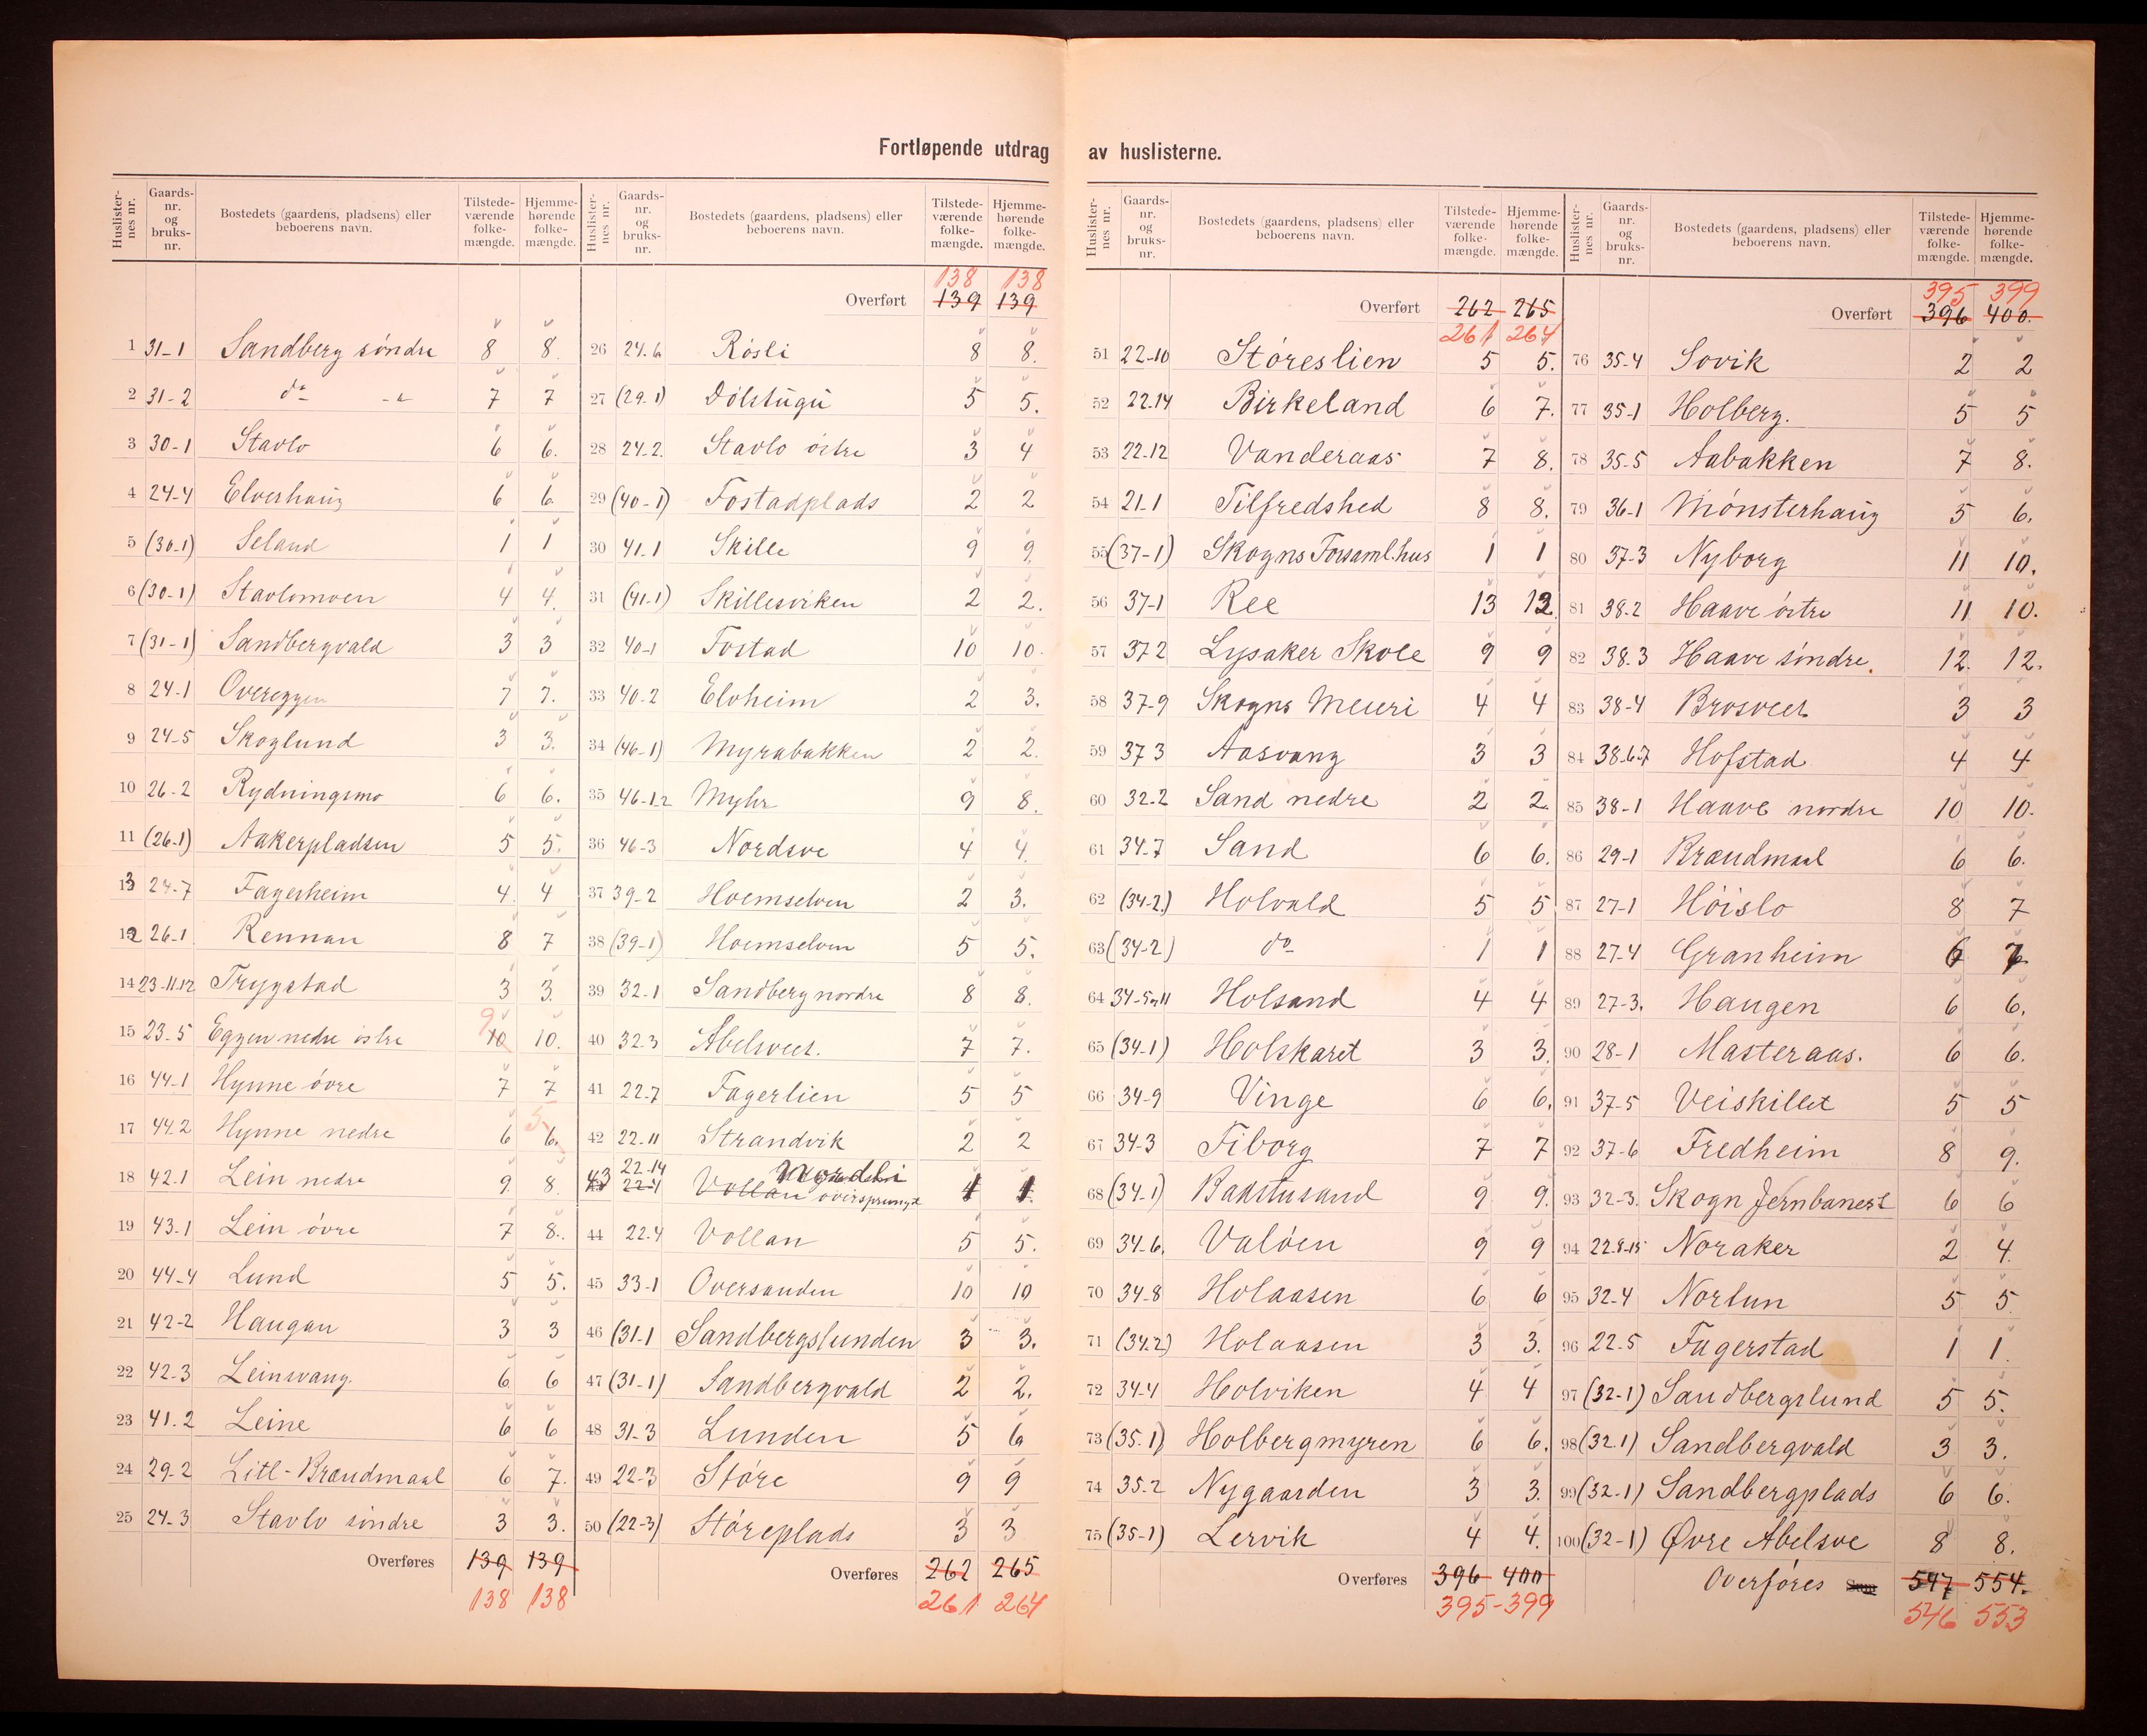 Fortløpende utdrag av huslisterne.
Huslisternes nr. Gaardsnr. og bruksnr. Bostedets (gaardens, pladsens) eller beboerens navn. Tilstedeværende folkemængde. Hjemmehørende folkemængde.
1 31-1 Sandberg søndre 8 8.
2 31-2 do - " 7 7
3 30-1 Stavlo 6 6.
4 24-4 Elverhaug 6 6
5 (30-1) Seland 1 1
6 (30-1) Stavlomoen 4 4.
7 (31-1) Sandbergvald 3 3
8 24-1 Overeggen 7 7.
9 24-5 Skoglund 3 3.
10 26-2 Rydningsmo 6 6.
11 (26-1) Aakerpladsen 5 5.
13 24-7 Fagerheim 4 4
12 26-1 Rennan 8 7
14 23-11.12 Trygstad 3 3.
15 23-5 Eggen nedre østre 9 10 10.
16 44-1 Hynne øvre 7 7
17 44.2 Hynne nedre 6 6. 5
18 42.1 Lein nedre 9 8.
19 43.1 Lein øvre 7 8.
20 44-4 Lund 5 5.
21 42-2 Haugan 3 3
22 42-3 Leinsvang. 6 6
23 41.2 Leine 6 6
24 29.2 Litl-Brændmaal 6 7.
25 24-3 Stavlo søndre 3 3.
Overføres 139 139
138 138
Huslisternes nr. Gaardsnr. og bruksnr. Bostedets (gaardens, pladsens) eller beboerens navn. Tilstedeværende folkemængde. Hjemmehørende folkemængde.
138 138
Overført 139 139
26 24.6 Røsli 8 8.
27 (29.1) Dølstugu 5 5.
28 24-2. Stavlo østre 3 4
29 (40-1) Fostadplads 2 2
30 41.1 Skille 9 9.
31 (41-1) Skillesviken 2 2.
32 40-1 Fostad 10 10.
33 40.2 Elvheim 2 3.
34 (46-1) Myrabakken 2 2.
35 46-1.2 Myhr 9 8.
36 46-3 Nordsve 4 4.
37 39-2 Hoemselven 2 3.
38 (39-1) Hoemselven 5 5.
39 32-1 Sandberg nordre 8 8.
40 32.3 Abelsveet. 7 7.
41 22-7 Fagerlien 5 5
42 22-11 Strandvik 2 2
43 22-14 22-4 Vollan Nordli oversprunget 1 1
44 22.4 Vollan 5 5.
45 33-1 Oversanden 10 10
46 (31-1 Sandbergslunden 3 3.
47 (31-1) Sandbergvald 2 2.
48 31-3 Lunden 5 6
49 22-3 Støre 9 9
50 (22-3) Støreplads 3 3
Overføres 262 265
261 264
Huslisternes nr. Gaardsnr. og bruksnr. Bostedets (gaardens, pladsens) eller beboerens navn. Tilstedeværende folkemængde. Hjemmehørende folkemængde.
Overført 262 265
261 264
51 22-10 Støreslien 5 5.
52 22-14 Birkeland 6 7.
53 22-12 Vanderaas 7 8.
54 21-1 Tilfredshed 8 8.
55 (37-1) Skogns Forsaml.hus 1 1
56 37-1 Ree 13 12.
57 37 2 Lysaker Skole 9 9
58 37-9 Skogns Meieri 4 4
59 37 3 Aasvang 3 3
60 32-2 Sand nedre 2 2.
61 34.7 Sand 6 6.
62 (34-2.) Holvald 5 5
63 (34-2) do 1 1
64 34-5og11 Holsand 4 4
65 (34-1) Holskaret 3 3.
66 34-9 Vinge 6 6.
67 34-3 Fiborg 7 7
68 (34-1) Baastusand 9 9.
69 34-6. Valøen 9 9
70 34-8 Holaasen 6 6
71 (34.2) Holaasen 3 3.
72 34-4 Holviken 4 4
73 (35.1) Holbergmyren 6 6.
74 35-2 Nygaarden 3 3.
75 (35-1) Lervik 4 4.
Overføres 396 400
395-399
Huslisternes nr. Gaardsnr. og bruksnr. Bostedets (gaardens, pladsens) eller beboerens navn. Tilstedeværende folkemængde. Hjemmehørende folkemængde.
395 399
Overført 396 400.
76 35-4 Sovik 2 2
77 35-1 Holberg. 5 5
78 35-5 Aabakken 7 8.
79 36-1 Mønsterhaug 5 6.
80 37-3 Nyborg 11 10.
81 38-2 Haave østre 11 10.
82 38.3 Haave søndre. 12. 12.
83 38-4 Brosveet 3 3
84 38-6.7 Hofstad 4 4
85 38-1 Haave nordre 10 10.
86 29-1 Brændmaal 6 6.
87 27-1 Høislo 8 7
88 27-4 Granheim 6 7
89 27-3. Haugen 6 6.
90 28-1 Masteraas. 6 6.
91 37-5 Veiskillet 5 5
92 37-6 Fredheim 8 9.
93 32-3. Skogn Jernbanest 6 6
94 22.8-15 Noraker 2 4.
95 32-4 Nortun 5 5.
96 22.5 Fagerstad 1 1.
97 (32-1) Sandbergslund 5 5.
98 (32.1) Sandbergvald 3 3.
99 (32-1) Sandbergplads 6 6.
100 (32-1) Øvre Abelsve 8 8.
Overføres Sum 547 554.
546 553